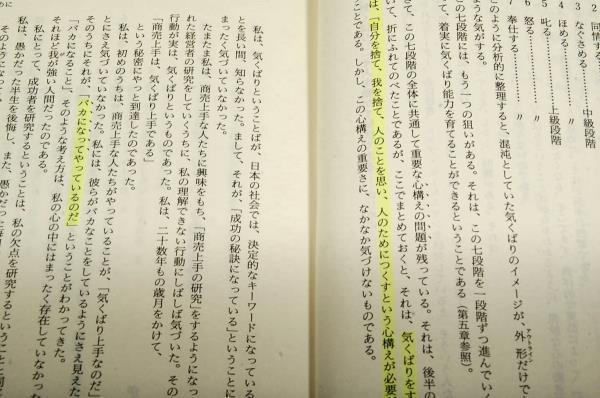 2 同情する
3 なぐさめる……… 中級段階
4 ほめる……… 〃
5 叱る……… 上級段階
6 怒る……… 〃
7 奉仕する……… 〃
このように分析的に整理すると、混沌としていた気くばりのイメージが、外形だけで
アウトライン
ような気がする。
この七段階には、もう一つの狙いがある。それは、この七段階を一段階ずつ進んでいく
て、着実に気くばり能力を育てることができるということである（第五章参照）。
て、この七段階の全体に共通して重要な心構えの問題が残っている。それは、後半の
いて、折にふれてのべたことであるが、ここでまとめておくと、それは、気くばりをす
は、「自分を捨て、我を捨て、人のことを思い、人のためにつくすという心構えが必要
ことである。しかし、この心構えの重要さに、なかなか気づけないものである。
めに
私は、気くばりということばが、日本の社会では、決定的なキーワードになっている
とを長い間、知らなかった。まして、それが、「成功の秘訣になっている」ということに
まったく気づいていなかった。
たまたま私は、商売上手な人たちに興味をもち、「商売上手の研究」をするようになっ
れた経営者の研究をしていくうちに、私の理解できない行動にしばしば気づいた。その
行動が実は、気くばりというものであった。私は、二十数年もの歳月をかけて、
「商売上手は、気くばり上手である」
という秘密にやっと到達したのであった。
私は、初めのうちは、商売上手な人たちがやっていることが、「気くばり上手なのだ」
とにさえ気づいていなかった。私には、彼らがバカなことをしているようにさえ見えた
そのうちにそれが、「バカになってやっているのだ」ということがわかってきた。
「バカになること」、そのような考え方は、私の心の中にはまったく存在していなかった
それほど我が強い人間だったのである。
私にとって、成功者を研究するということは、私の欠点を研究するということと同
私は、愚かだった半生を後悔し、また、愚かだった
そのように